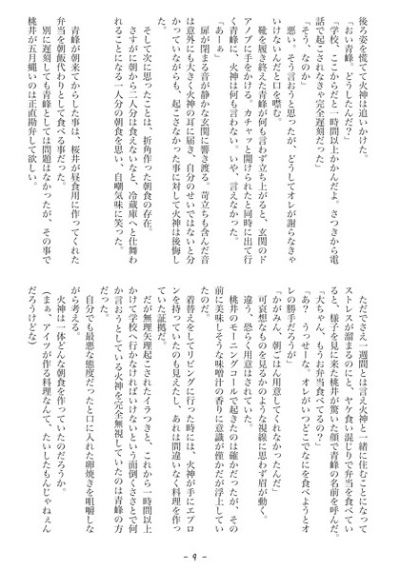 後ろ姿を慌てて火神は追いかけた。
「おい青峰。どうしたんだ？」
「学校、ここからだと一時間以上かかんだよ。さつきから電
話で起こされなきゃ完全遅刻だった」
「そう、なのか」
悪い、そう言おうと思ったが、どうしてオレが謝らなきゃ
いけないんだと口を噤む。
靴を履き終えた青峰が何も言わず立ち上がると、玄関のド
アノブに手をかける。カチャッと開けられたと同時に出て行
く青峰に、火神は何も言わない。いや、言えなかった。
「あーぁ」
扉が閉まる音が静かな玄関に響き渡る。苛立ちも含んだ音
は意外にも大きく火神の耳に届き、自分のせいではないと分
かっていながらも、起こさなかった事に対して火神は後悔し
た。
そして次に思ったことは、折角作った朝食の存在。
さすがに朝から二人分は食えないなと、冷蔵庫へと仕舞わ
れることになる一人分の朝食を思い、自嘲気味に笑った。
青峰が朝来てからした事は、桜井が昼食用に作ってくれた
弁当を朝飯代わりとして食べる事だった。
別に遅刻しても青峰としては問題はなかったが、その事で
桃井が五月蠅いのは正直勘弁して欲しい。
ただでさえ一週間とは言え火神と一緒に住むことになって
ストレスが溜まるのにと、ヤケ食い混じりで弁当を食べてい
ると、様子を見に来た桃井が驚いた顔で青峰の名前を呼んだ。
「大ちゃん、もうお弁当食べてるの？」
「あ？うっせーな。オレがいつどこでなにを食べようとオ
レの勝手だろうが」
「かがみん、朝ごはん用意してくれなかったんだ」
可哀想なものを見るかのような視線に思わず眉が動く。
違う、恐らく用意はされていた。
桃井のモーニングコールで起きたのは確かだったが、その
前に美味しそうな味噌汁の香りに意識が僅かだが浮上してい
たのだ。
着替えをしてリビングに行った時には、火神が手にエプロ
ンを持っていたのも見えたし、あれは間違いなく料理を作っ
ていた証拠だ。
だが無理矢理起こされたイラつきと、これから一時間以上
かけて学校へ行かなければいけないという面倒くささとで何
か言おうとしている火神を完全無視していたのは青峰の方
だった。
自分でも最悪な態度だったと口に入れた卵焼きを咀嚼しな
がら考える。
火神は一体どんな朝食を作っていたのだろうか。
（まぁ、アイツが作る料理なんて、たいしたもんじゃねぇん
だろうけどな）
- 9 -